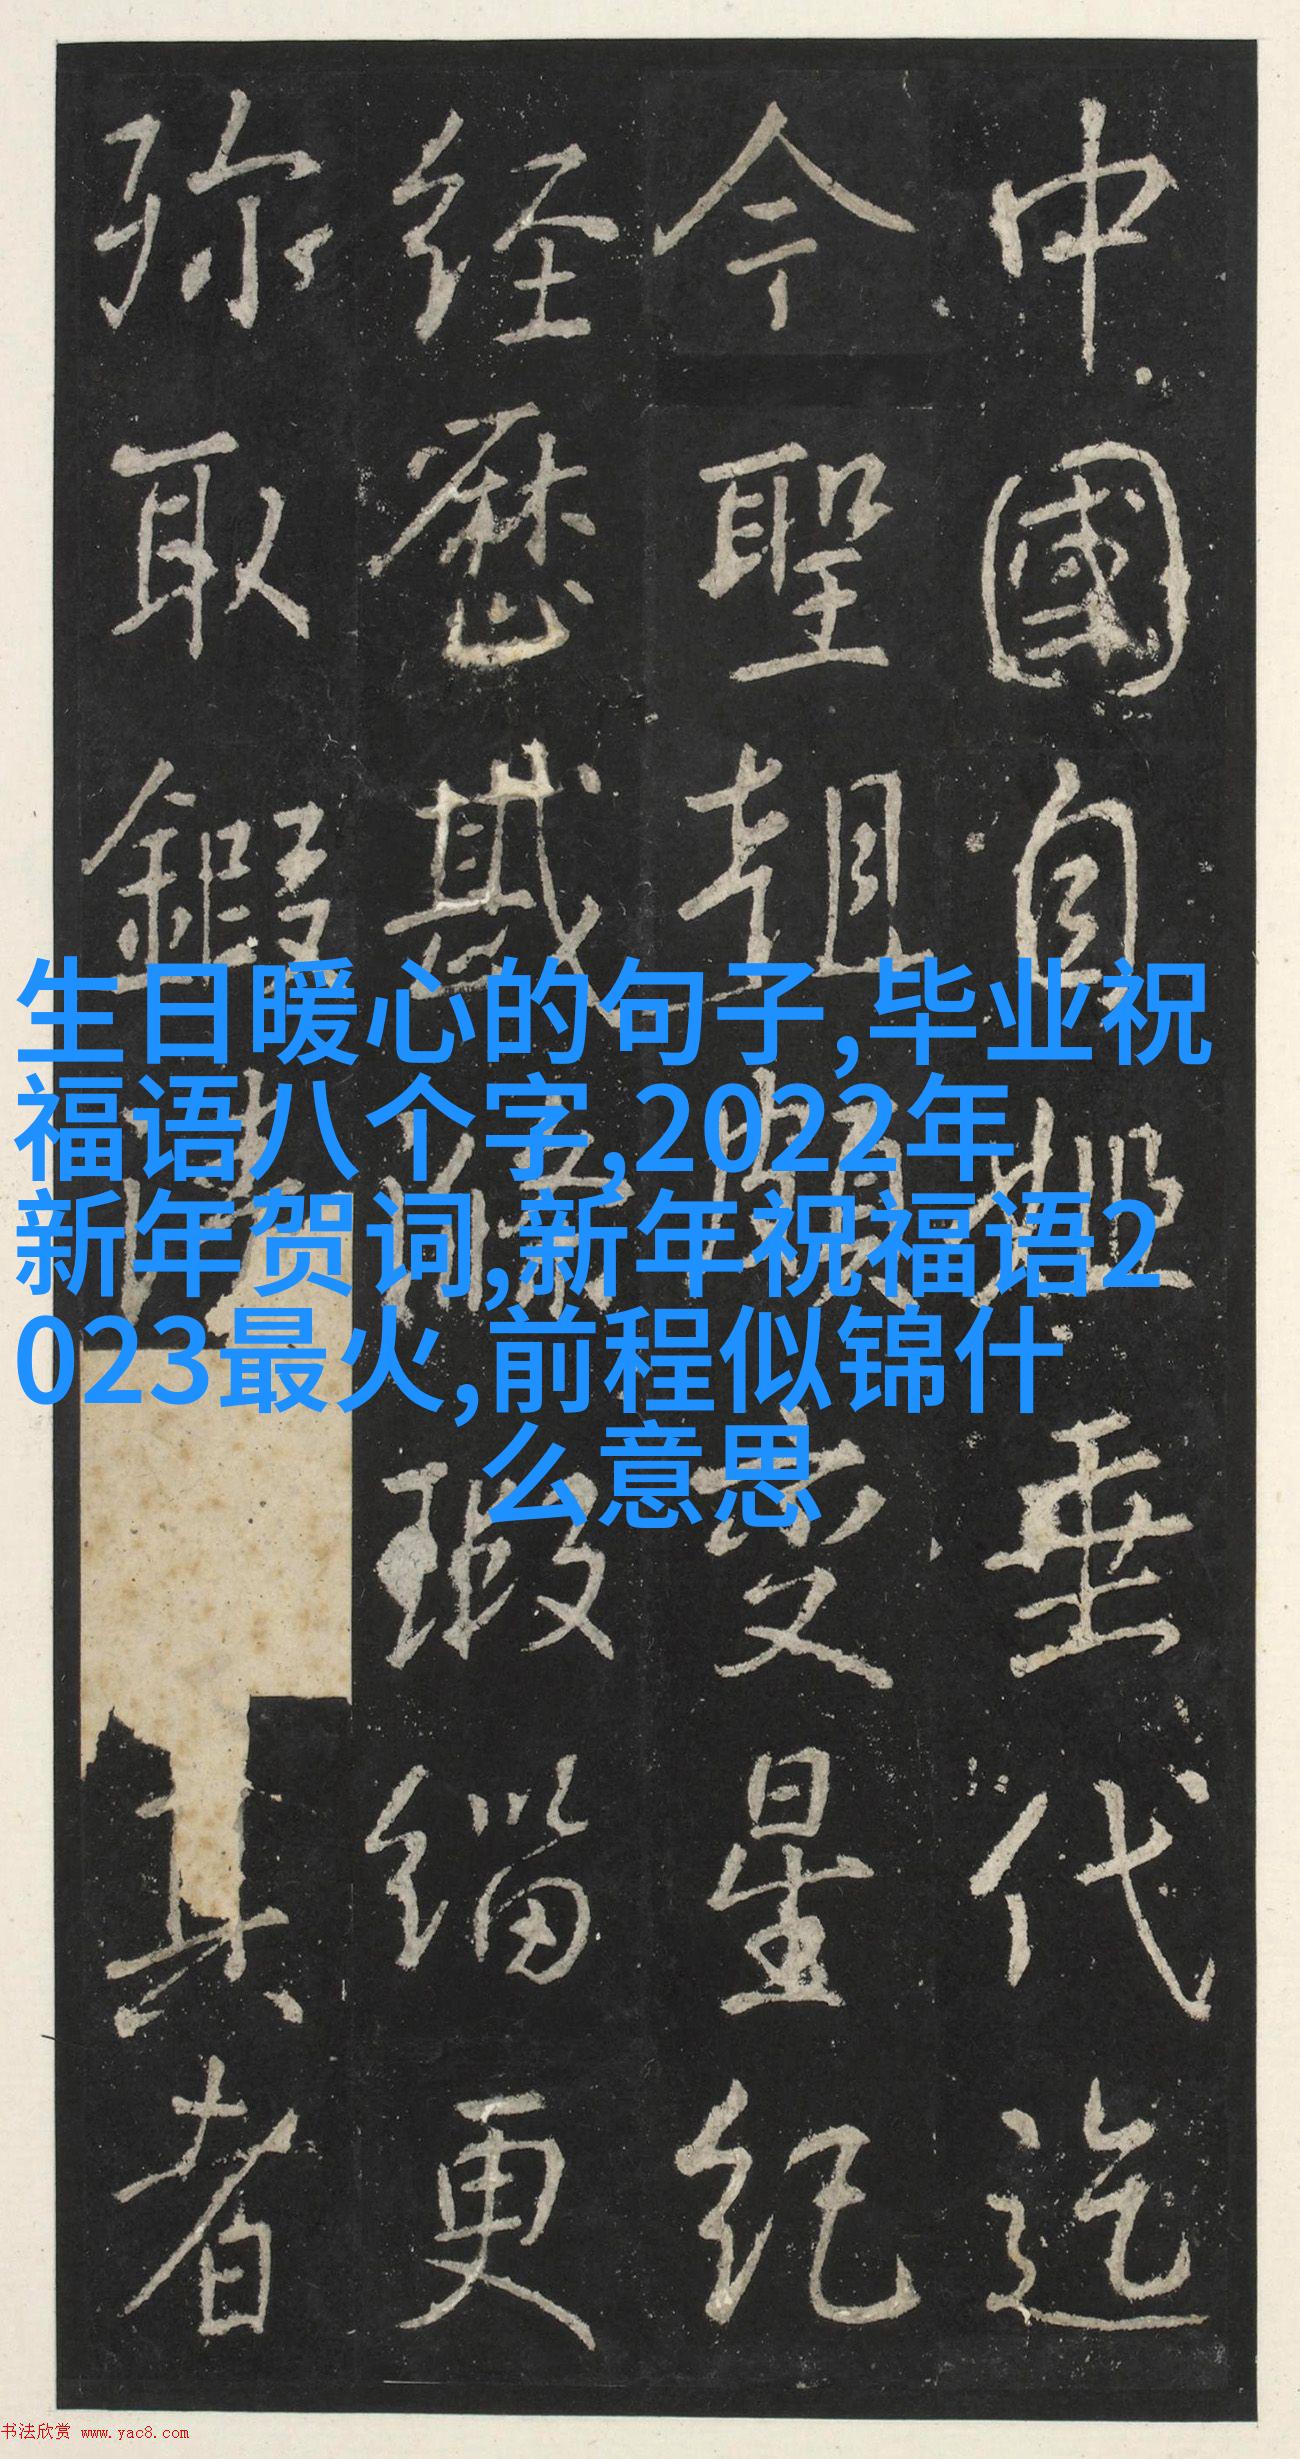 生日暖心的句子,毕业祝
福语八个字,2022年
新年贺词,新年祝福语2
023最火,前程似锦什
么意思
中國自姬垂代迄
今聖朝星紀
經歷瑕緇更
弥取鍜真者
书法欣赏 www.yac8.com